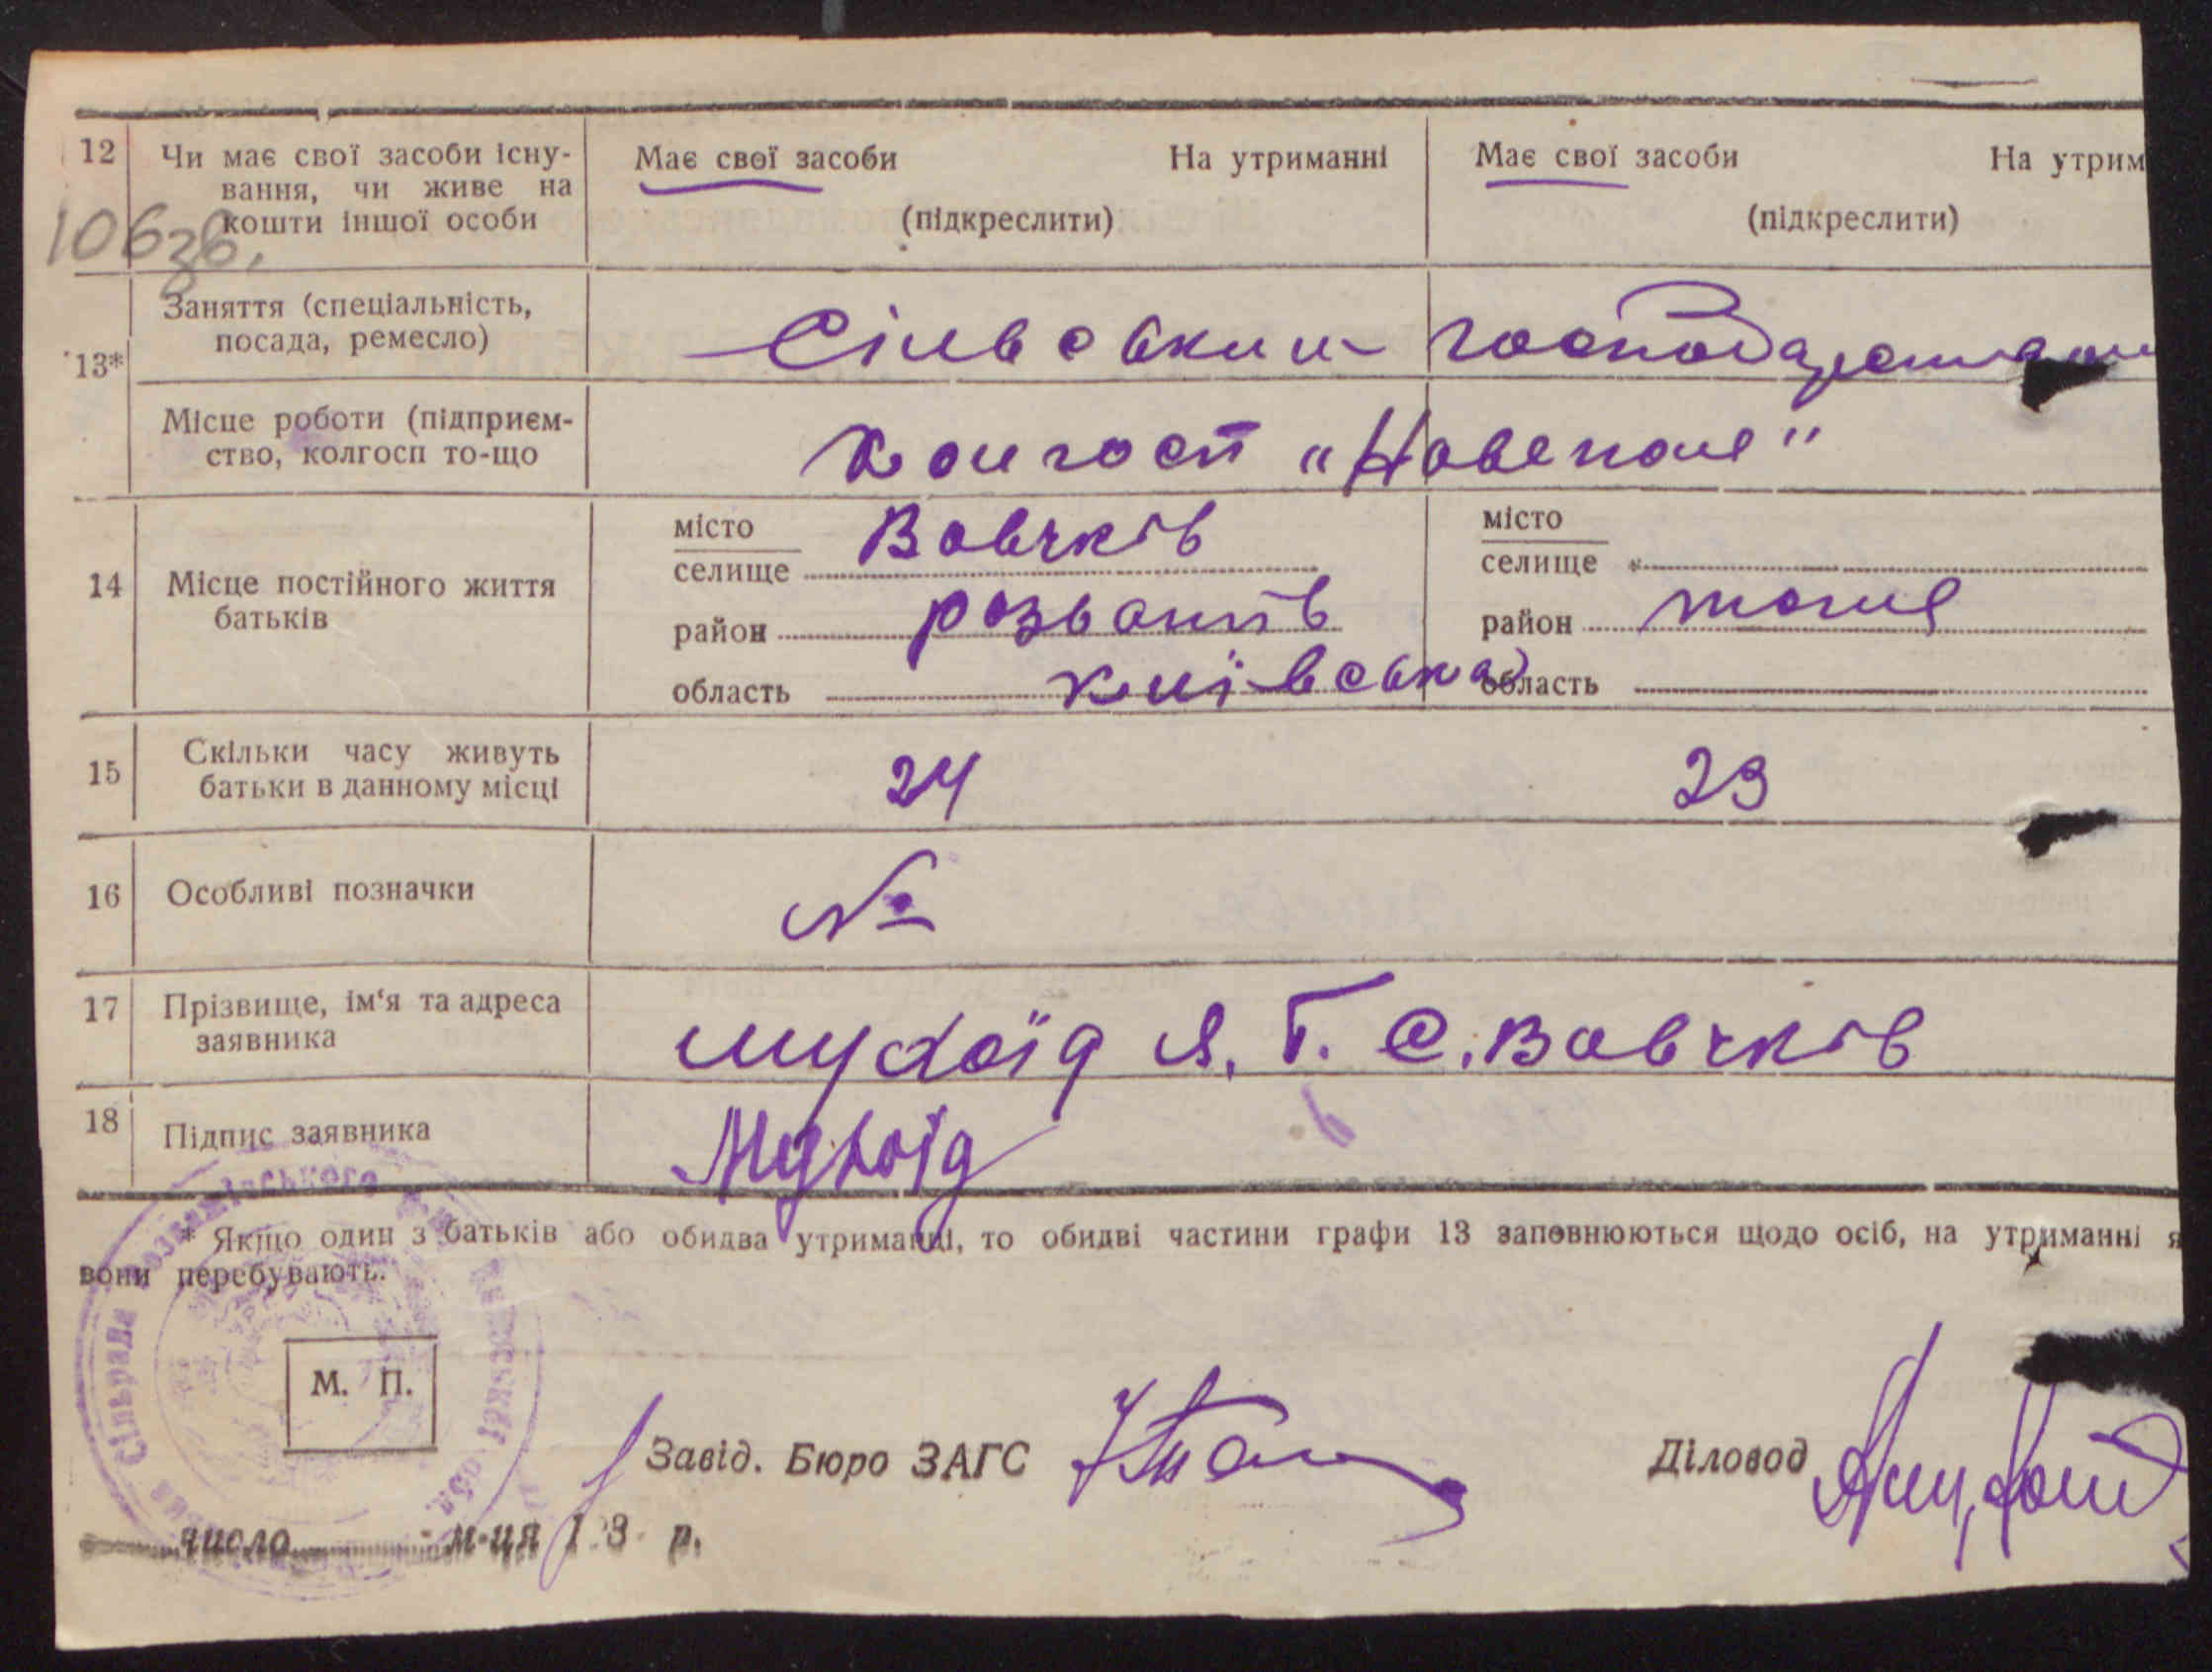 12 Чи має свої засоби існу- Має свої засоби На утриманні Має свої засоби На утрим
вання, чи живе на
106зв. кошти іншої особи (підкреслити) (підкреслити)
Заняття (спеціальність,
посада, ремесло) Сільським господарством
13*
Місце роботи (підприєм-
ство, колгосп то-що Колгосп "Новеполе"
14 Місце постійного життя
батьків
місто Вовчків місто
селище селище
район розважів район тоже
область київська область
15 Скільки часу живуть
батьки в данному місці 24 23
16 Особливі позначки №
17 Прізвище, ім'я та адреса
заявника Мухоїд Я. Г. С. Вовчків
18 Підпис заявника Мухоїд
* Якщо один з батьків або обидва утриманці, то обидві частини графи 13 заповнюються щодо осіб, на утриманні я
вони перебувають.
Сільрада
М. П.
Завід. Бюро ЗАГС Діловод
число м-ця 193 р.